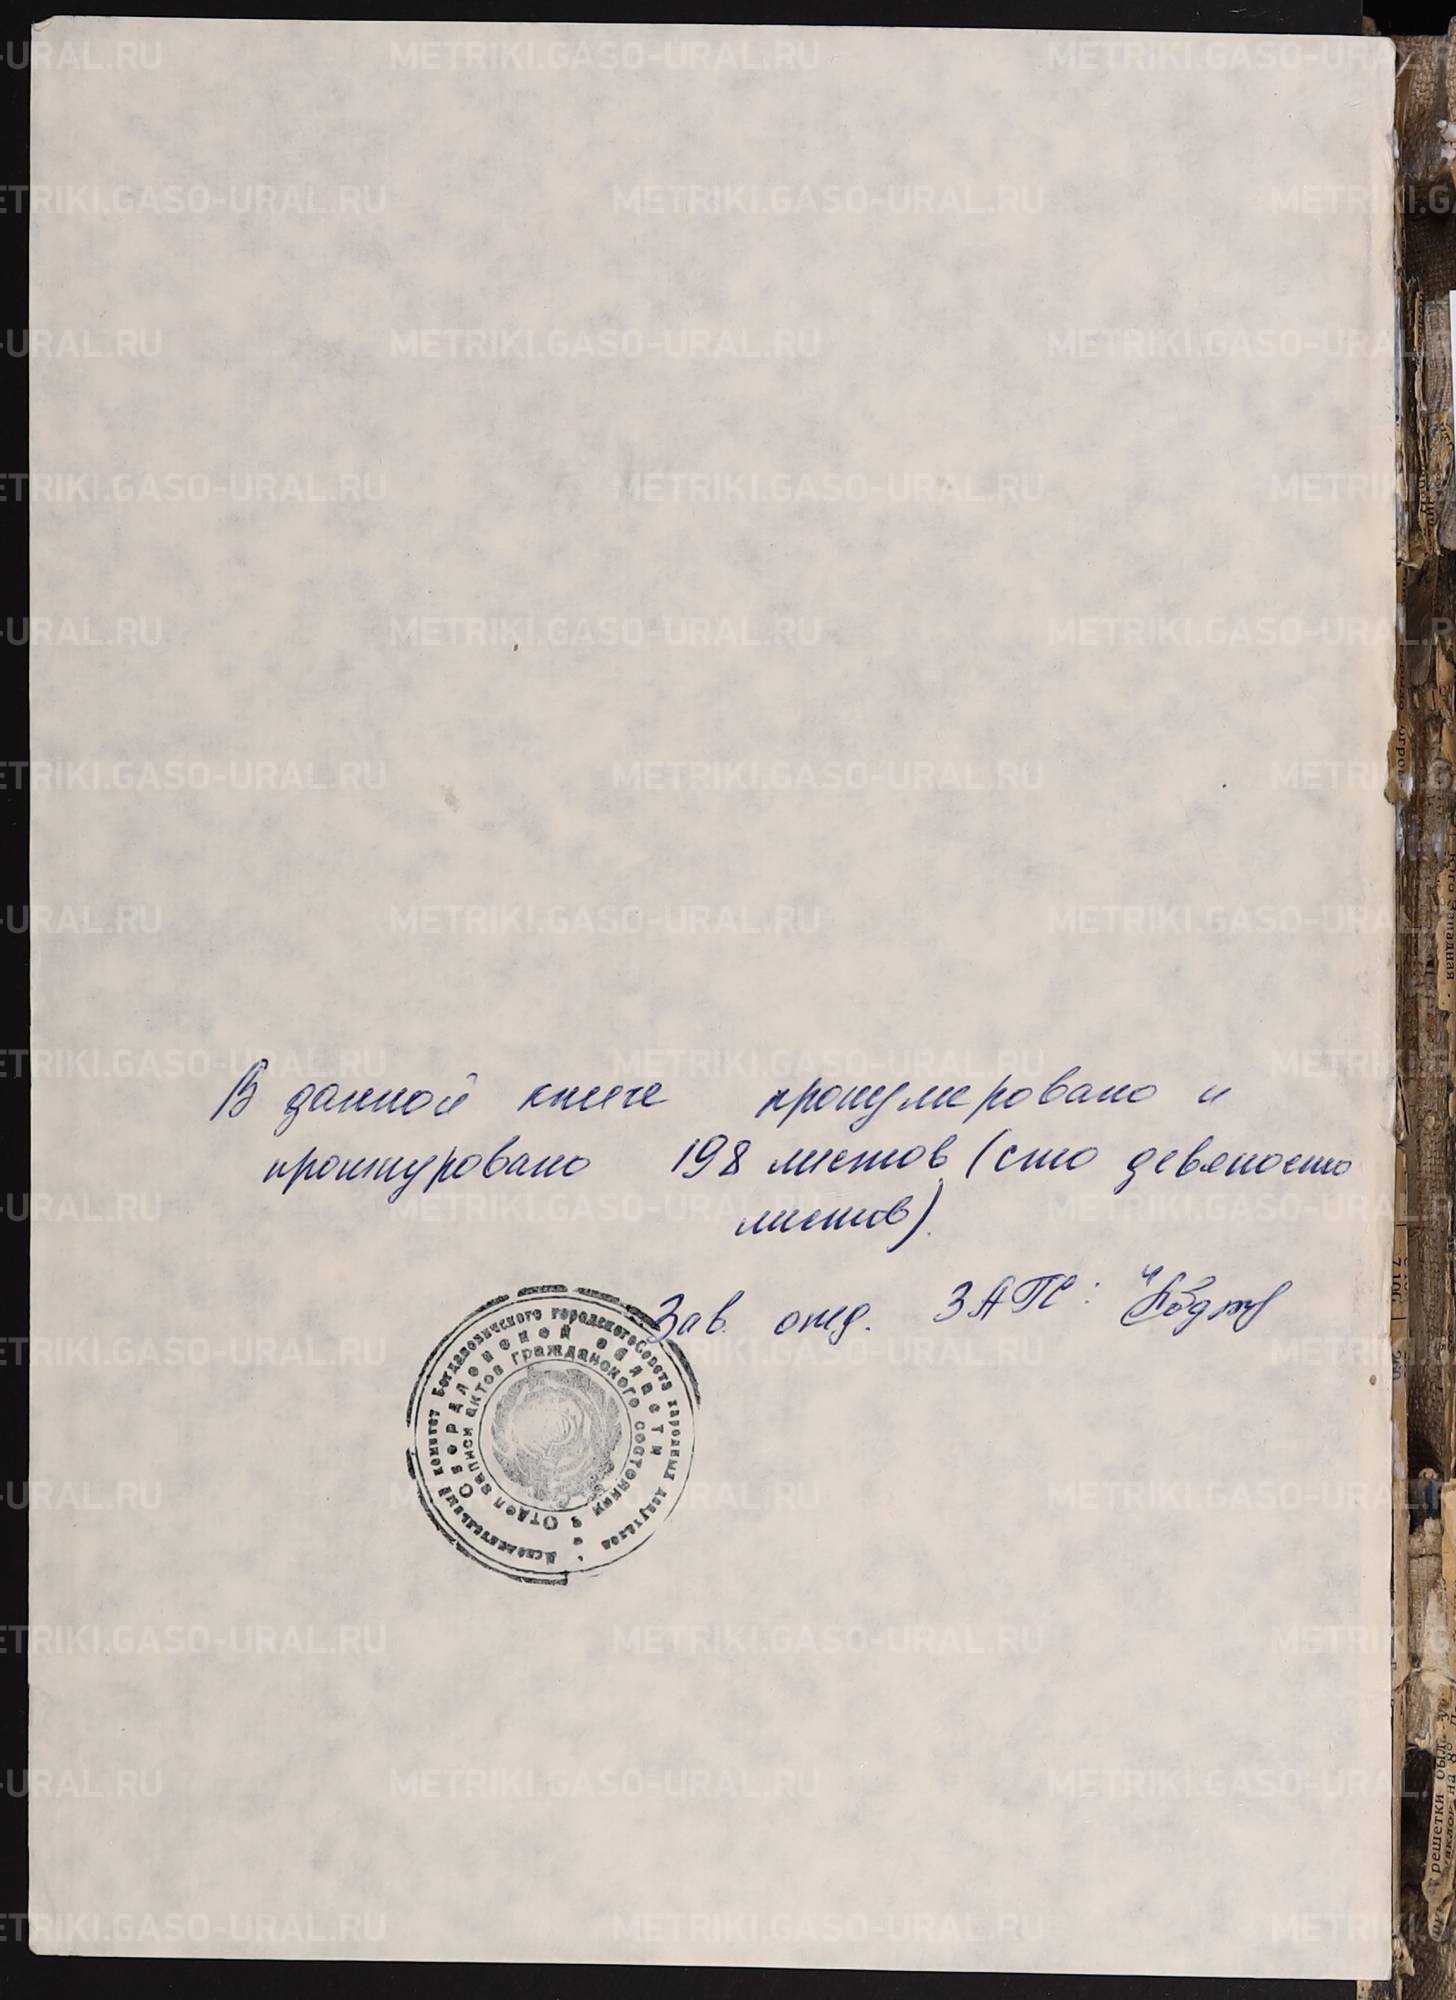 В данной книге пронумеровано и
прошнуровано 198 листов (сто девяносто
листов).
Зав. отд. ЗАГС:
Исполнительный комитет Богдановичского городского Совета народных депутатов
Свердловской области
Отдел записи актов гражданского состояния
METRIKI.GASO-URAL.RU
решетки был.